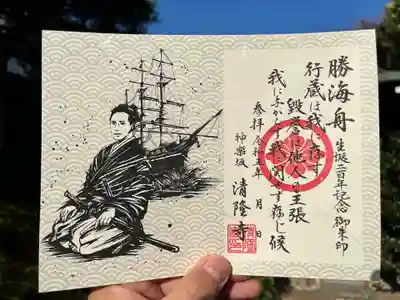 勝海舟
生誕二百年記念御朱印
行蔵は我に存す
毀誉は他人の主張
我に与からず我に関せず存じ候
参拝 令和五年 月 日
神楽坂 清隆寺